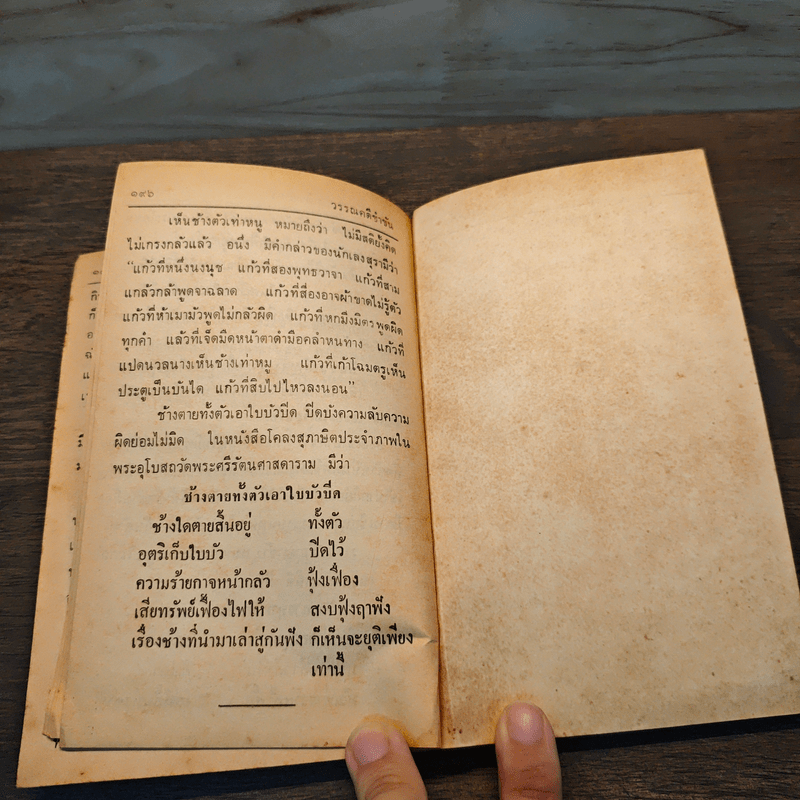 ๑๙๖
วรรณคดีขำขัน
เห็นช้างตัวเท่าหนู หมายถึงว่า ไม่มีสติยั้งคิด
ไม่เกรงกลัวแล้ว อนึ่ง มีคำกล่าวของนักเลงสุรามีว่า
“แก้วที่หนึ่งนงนุช แก้วที่สองพุทธวาจา แก้วที่สาม
แกล้วกล้าพูดจาฉลาด แก้วที่สี่องอาจผ้าขาดไม่รู้ตัว
แก้วที่ห้าเมามัวพูตไม่กลัวผิด แก้วที่หกมึงมิตรพูดผิด
ทุกคำ แล้วที่เจ็ดมืดหน้าตาดำมือคลำหนทาง แก้วที่
แปดนวลนางเห็นช้างเท่าหมู แก้วที่เก้าโฉมตรูเห็น
ประตูเป็นบันได แก้วที่สิบไปไหวลงนอน”
ช้างตายทั้งตัวเอาใบบัวปิด ปิดบังความลับความ
ผิดย่อมไม่มิด ในหนังสือโคลงสุภาษิตประจำภาพใน
พระอุโบสถวัดพระศรีรัตนศาสดาราม มีว่า
ช้างตายทั้งตัวเอาใบบัวปิด
ช้างใดตายสิ้นอยู่ ทั้งตัว
อุตริเก็บใบบัว ปิดไว้
ความร้ายกาจหน้ากลัว ฟุ้งเฟื่อง
เสียทรัพย์เฟื้องไฟให้ สงบฟุ้งฤาฟัง
เรื่องช้างที่นำมาเล่าสู่กันฟัง ก็เห็นจะยุติเพียง
เท่านี้